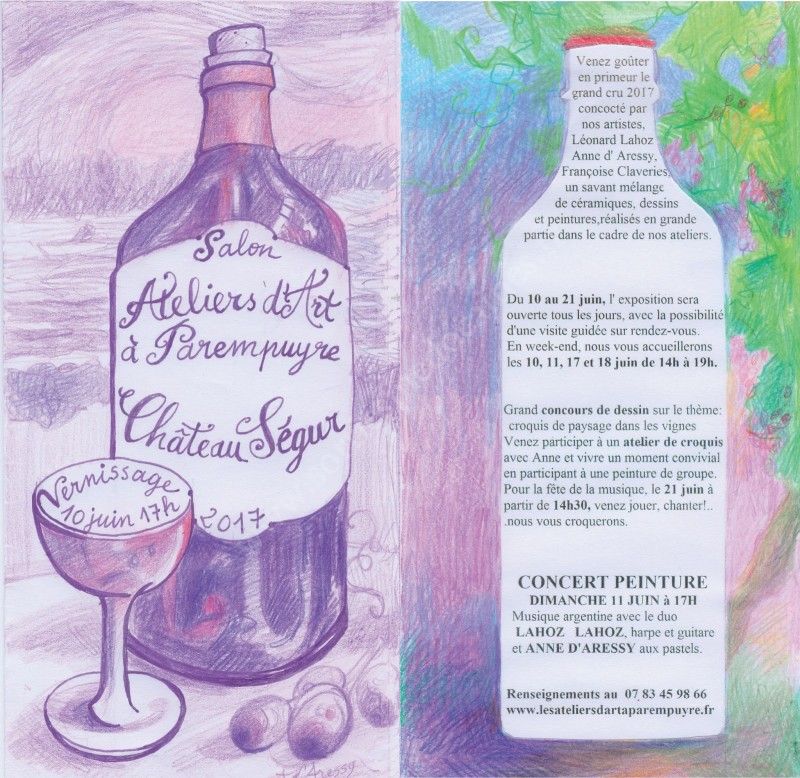 Salon
Ateliers d'Art
à Parempuyre
Château Ségur
2017
Vernissage
10 juin 17h
d'Aressy
Venez goûter
en primeur le
grand cru 2017
concocté par
nos artistes,
Léonard Lahoz
Anne d' Aressy,
Françoise Claveries,
un savant mélange
de céramiques, dessins
et peintures,réalisés en grande
partie dans le cadre de nos ateliers.
Du 10 au 21 juin, l' exposition sera
ouverte tous les jours, avec la possibilité
d'une visite guidée sur rendez-vous.
En week-end, nous vous accueillerons
les 10, 11, 17 et 18 juin de 14h à 19h.
Grand concours de dessin sur le thème:
croquis de paysage dans les vignes
Venez participer à un atelier de croquis
avec Anne et vivre un moment convivial
en participant à une peinture de groupe.
Pour la fête de la musique, le 21 juin à
partir de 14h30, venez jouer, chanter!..
.nous vous croquerons.
CONCERT PEINTURE
DIMANCHE 11 JUIN à 17H
Musique argentine avec le duo
LAHOZ LAHOZ, harpe et guitare
et ANNE D'ARESSY aux pastels.
Renseignements au 07 83 45 98 66
www.lesateliersdartaparempuyre.fr